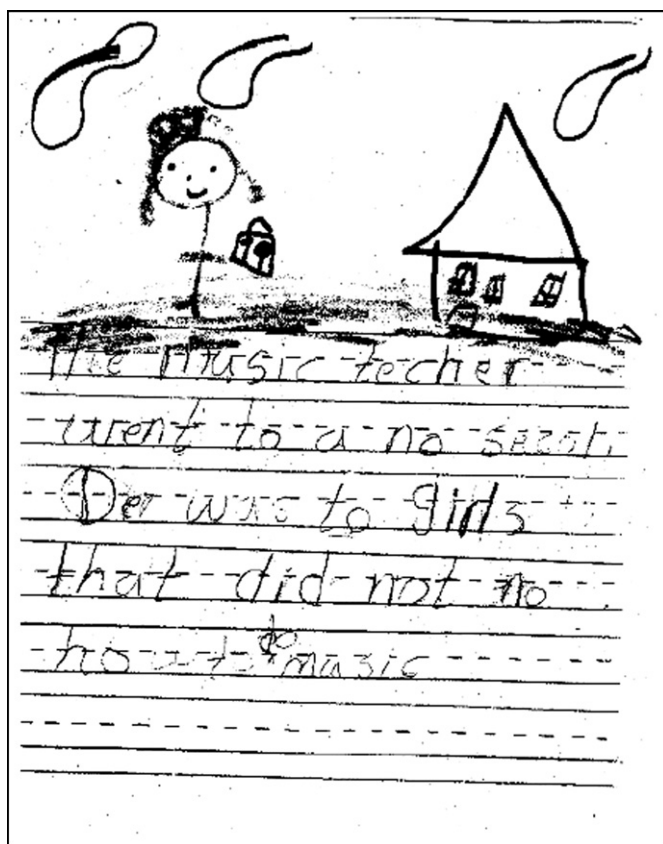 The music techer
went to a no
Der was to girls
that did not no
how to do music